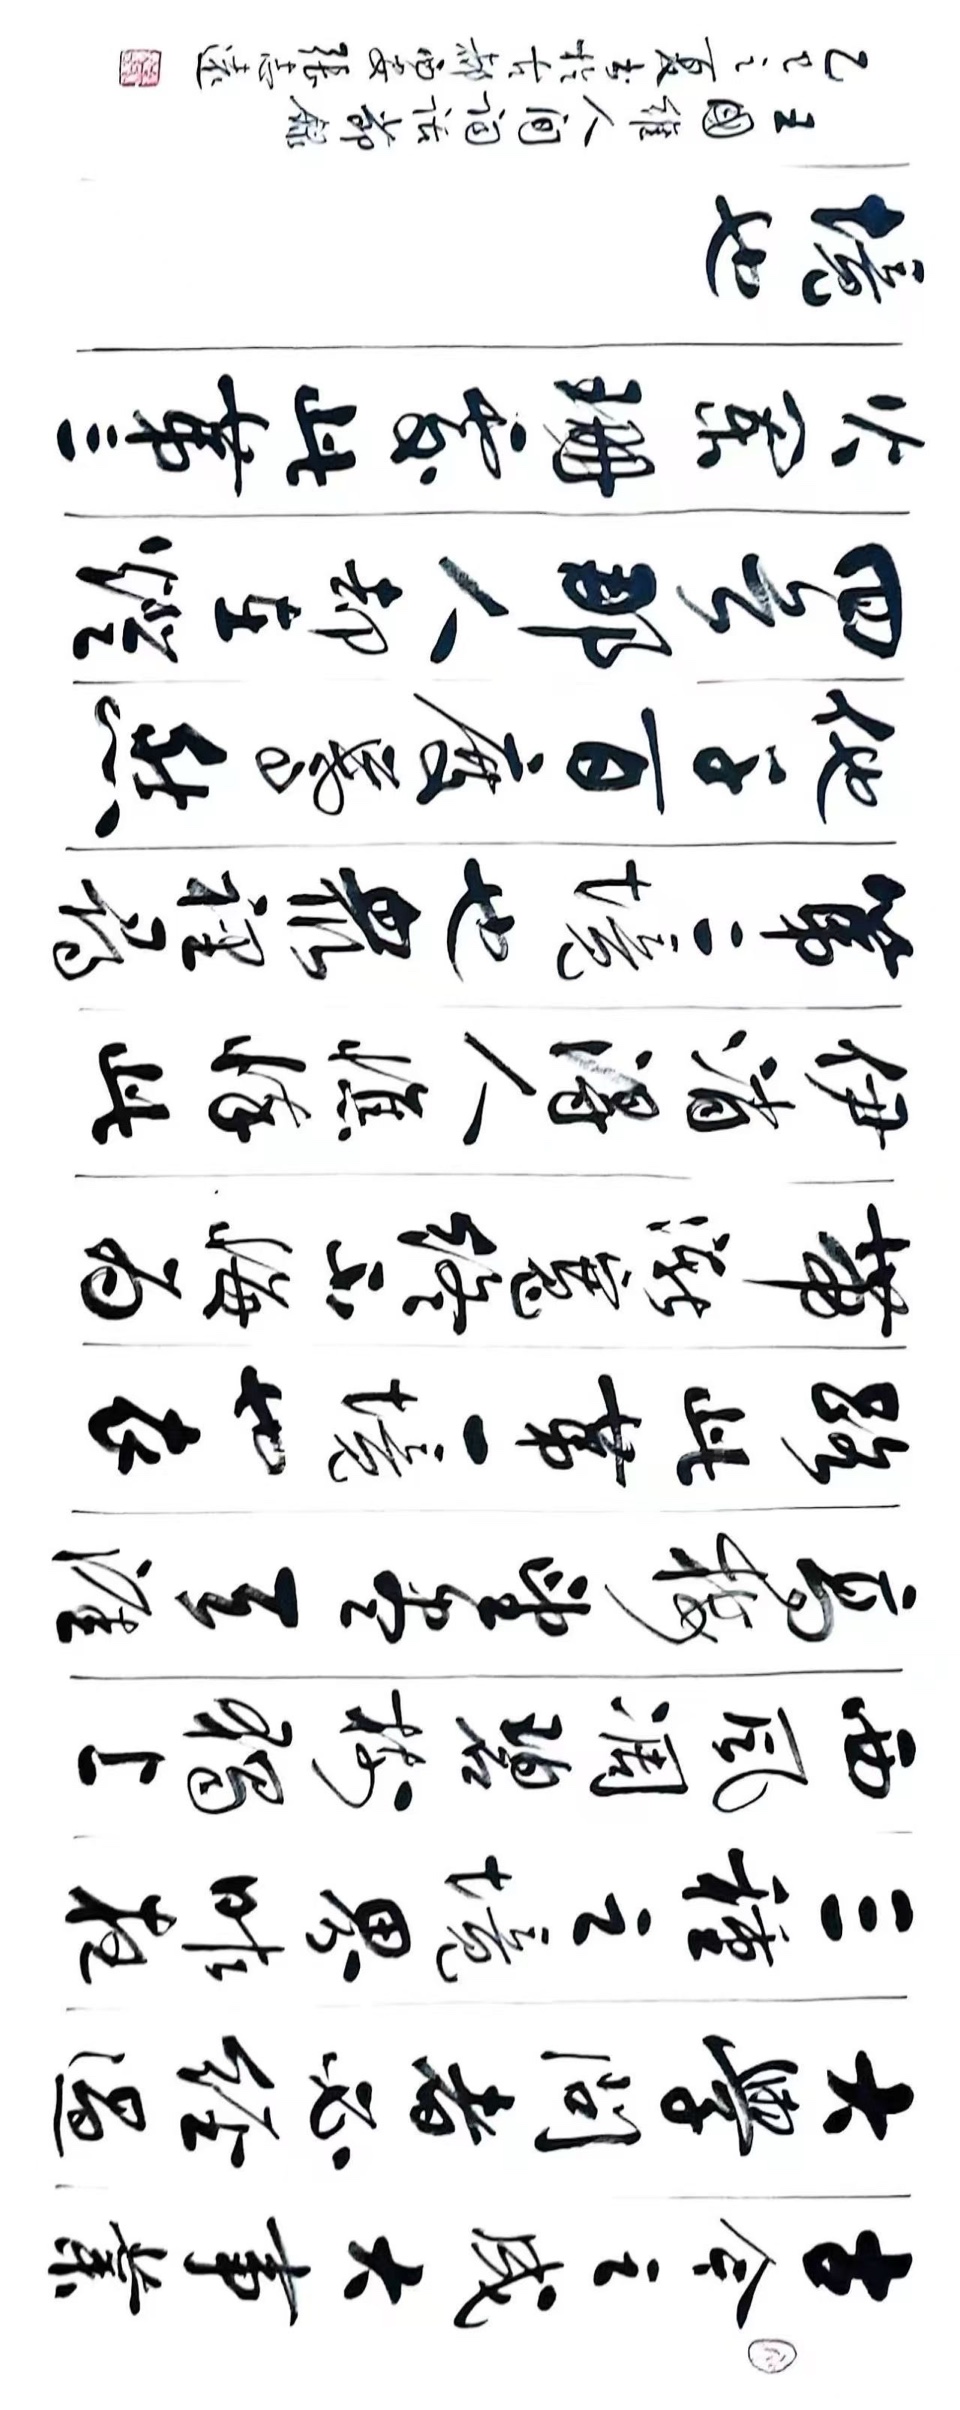 古今之成大事業
大學問者必經過
三種之境界昨夜
西風凋碧樹獨上
高樓望盡天涯
路此第一境也衣
帶漸寬終不悔為
伊消得人憔悴此
第二境也眾裡尋
他千百度驀然
回首那人却在燈
火闌珊處此第三
境也
王國維人間詞話節錄
乙巳之夏書於古都西安張志